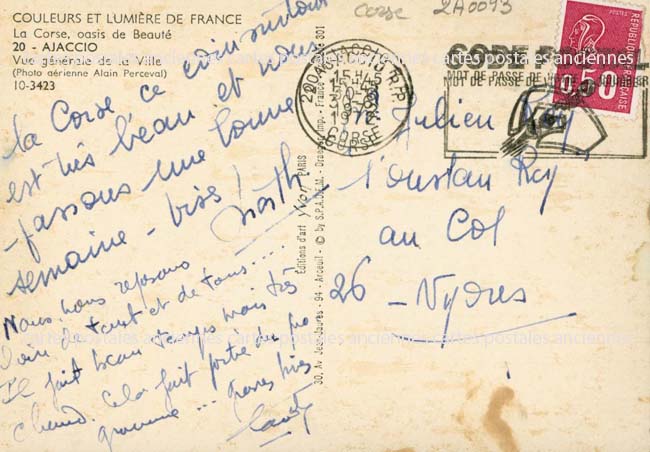 COULEURS ET LUMIÈRE DE FRANCE
La Corse, oasis de Beauté
20 - AJACCIO
Vue générale de la Ville
(Photo aérienne Alain Perceval)
10-3423
Corse 2A0093
la Corse ce coin surtout
est très beau et nous
passons une bonne
semaine - bises !
Nous nous reposons
loin de tout et de tous ....
Il fait beau temps mais très
chaud. Cela fait partie du pro
gramme ... bises
Éditions d'art yvon PARIS
30, Av. Jean-Jaurès - 94 - Arcueil - © by S.P.A.D.E.M. - Draeger, Imp. - France 301
20 AJACCIO R.P.
15H45
CORSE
CODE POSTAL
MOT DE PASSE DE VOTRE COURRIER
0,50
FRANÇAISE
Julien Rey
Loustau Rey
au Col
26 - Nyons
cartes postales anciennes cartes postales anciennes cartes postales anciennes